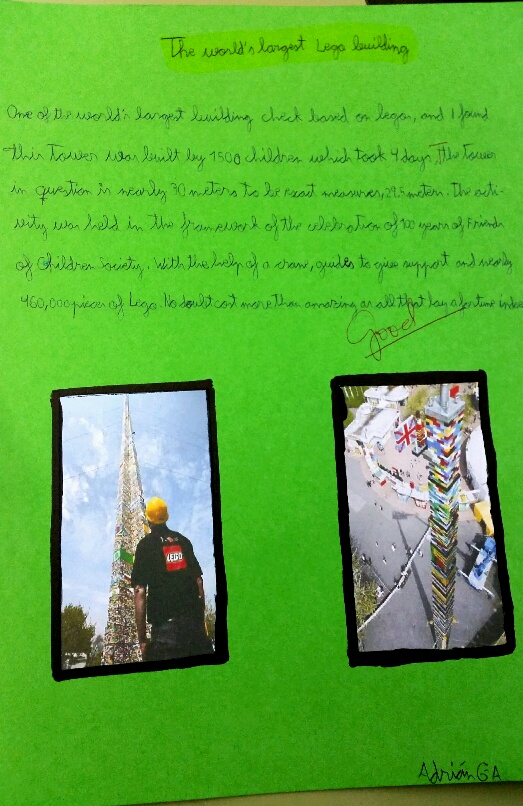 The world's largest Lego building
One of the world's largest building check based on legos, and I found
this Tower was built by 1500 children which took 4 days. The Tower
in question is nearly 30 meters to be exact measures, 29.5 meters. The acti-
vity was held in the framework of the celebration of 100 years of Friends
of Children Society. With the help of a crane, guides to give support and nearly
460,000 pieces of Lego. No doubt cost more than amazing as all that buy a fortune
Good
LEGO
Adrián G A